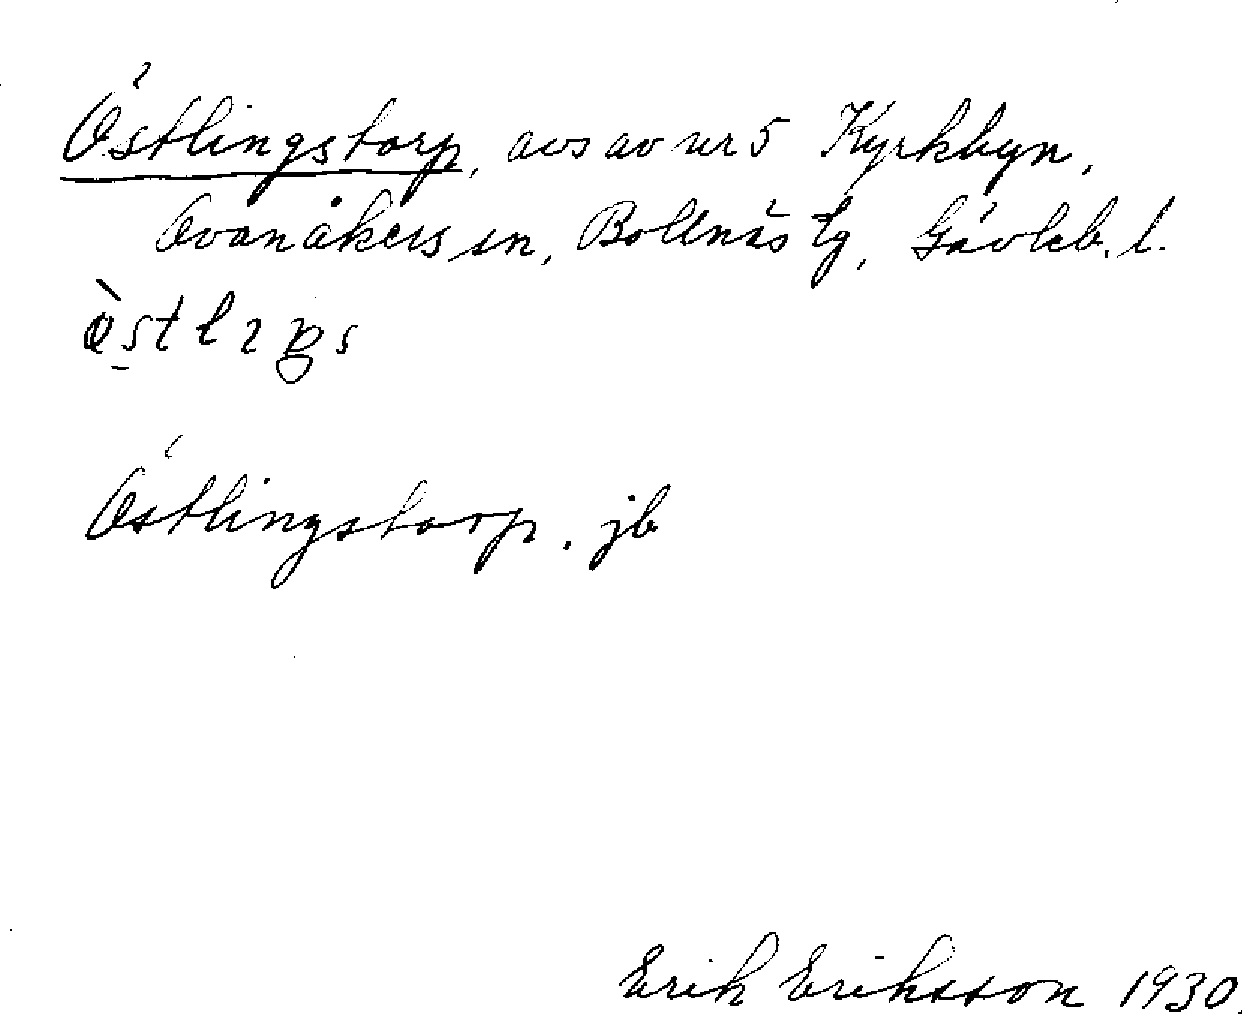 Östlingstorp, avs av nr 5 Kyrkbyn,
Ovanåkers sn, Bollnäs tg, Gävleb. l.
Östlingstorp. jb
Erik Eriksson 1930.